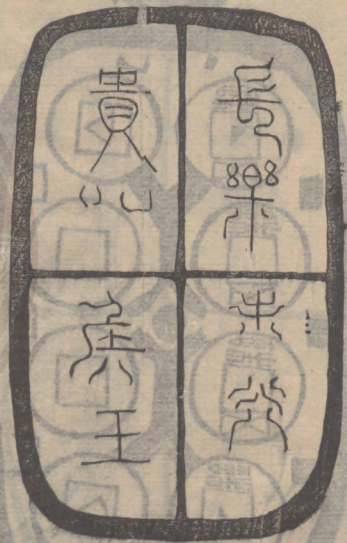 長樂未央
貴侯王